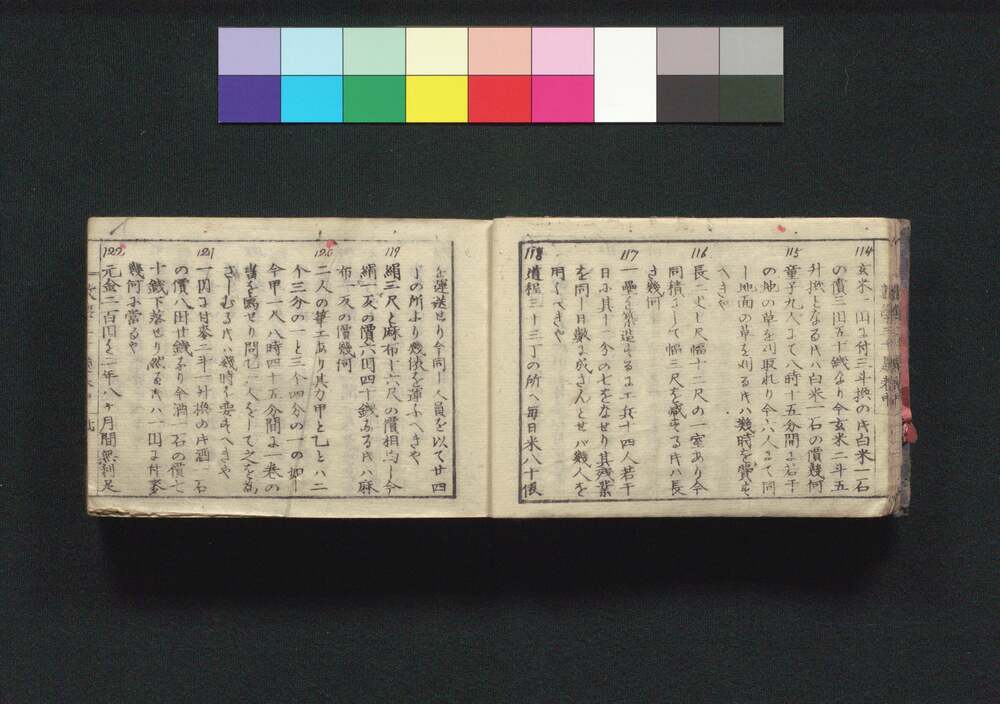 114
玄米一円ニ付三斗換の氏白米一石
の價三円五十銭なり今玄米二斗五
升換となる氏ハ白米一石の價幾何
115
童子九人にて八時十五分間に若干
の地の草を刈取れり今六人にて同
し地面の草を刈る氏ハ幾時を費す
へきや
116
長二丈七尺幅十二尺の一室あり今
同積にして幅三尺を減する氏ハ長
さ幾何
117
一壘を築造するに工兵十四人若干
日に其十一分の七をなせり其残業
を同し日數に成さんとせハ幾人を
用ゆへきや
118
道程三十三丁の所へ毎日米八十俵
を運送せり今同し人員を以て廿四
丁の所より幾俵を運ふへきや
119
絹三尺と麻布十六尺の價相均し今
絹一反の價六円四十銭なる氏ハ麻
布一反の價幾何
120
二人の筆工あり其力甲と乙とハ二
个三分の一と三个四分の一の如し
今甲一人八時四十五分間に一巻の
書を寫せり問乙一人をして之を寫
さしむる氏ハ幾時を要すへきや
121
一円に付麥二斗一升換の氏酒一石
の價八円廿銭なり今酒一石の價七
十銭下落せり然る氏ハ一円に付麥
幾何に當るや
122
元金二百円を一年八ヶ月間無利足